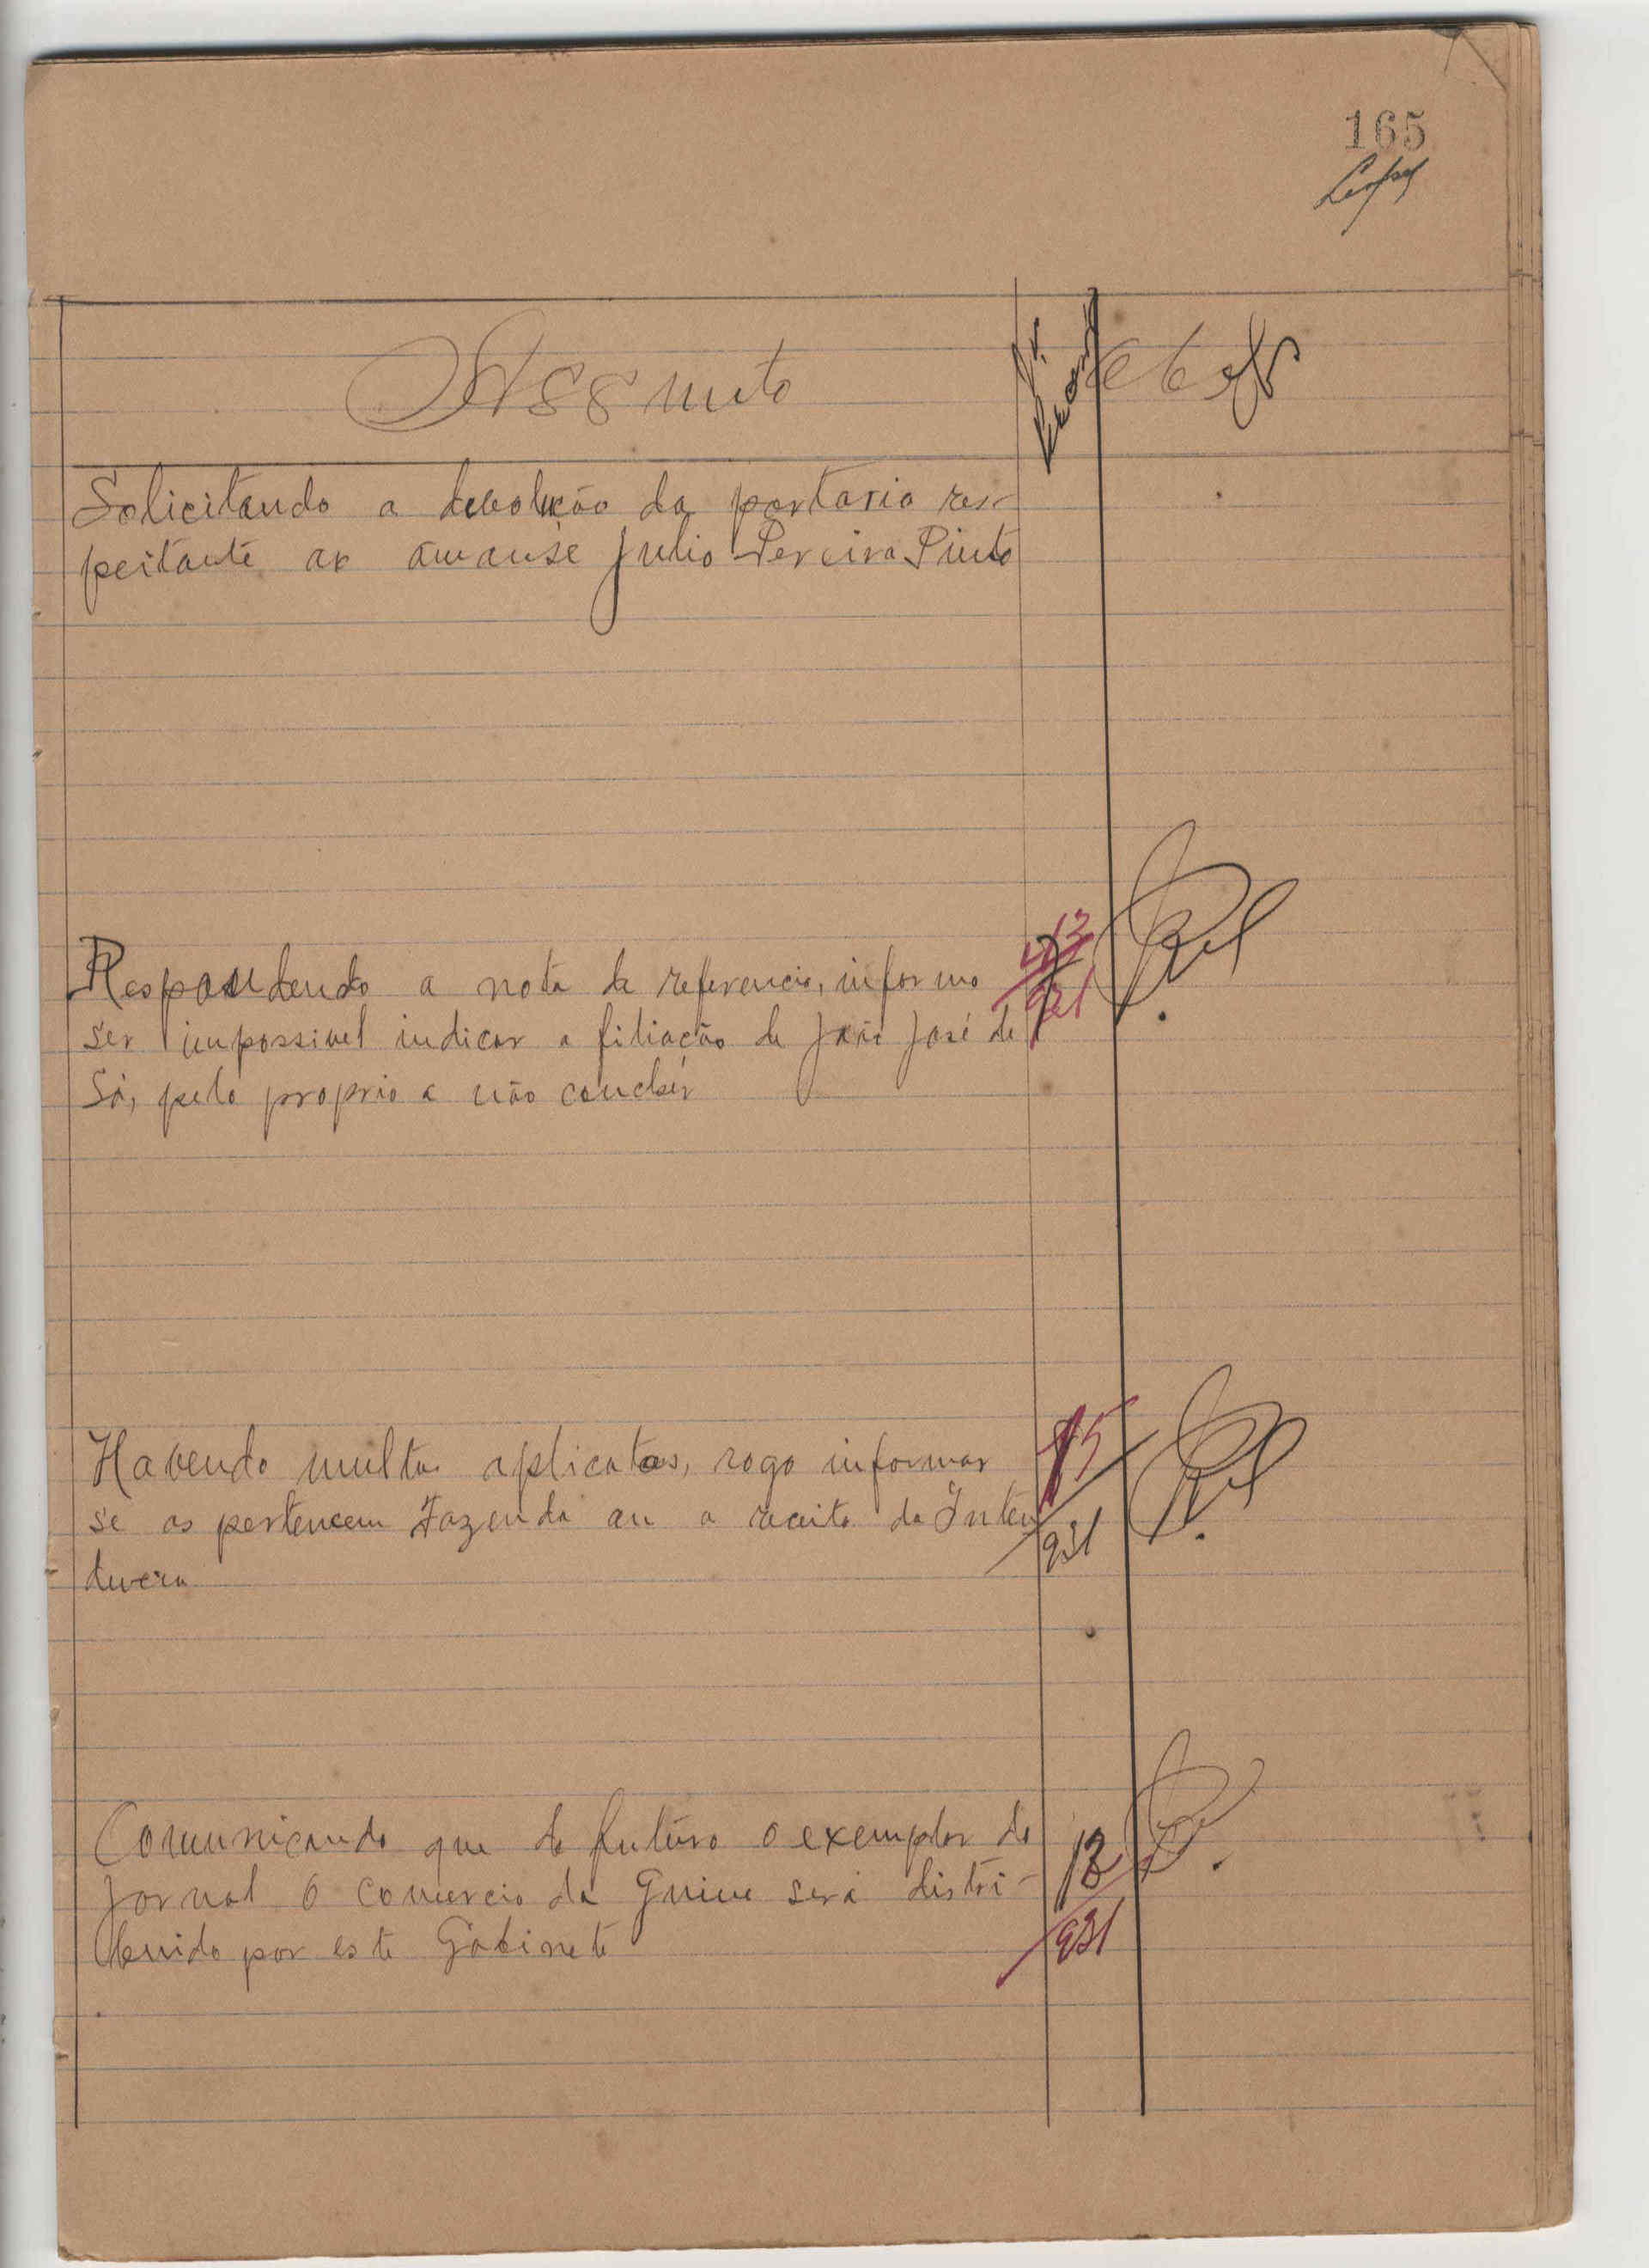 165
Assunto
Solicitando a devolução da portaria res-
peitante ao amanse Julio Pereira Pinto
Respondendo a nota de referencia, informo
ser impossivel indicar a filiação de João José de
Sá, pelo proprio a não
13
931
Havendo multas aplicatas, rogo informar
se as pertencem Fazenda ou a receita da Inten
dencia
15
931
Comunicando que de futuro o exemplar do
Jornal O Comercio da Guine será distri-
buido por este Gabinete
13
931